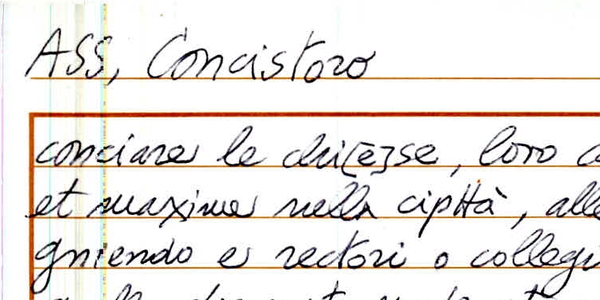 ASS, Concistoro
conciare le chi[e]se, loro
et maxime nella cipttà, alle
gniendo e rectori o collegi